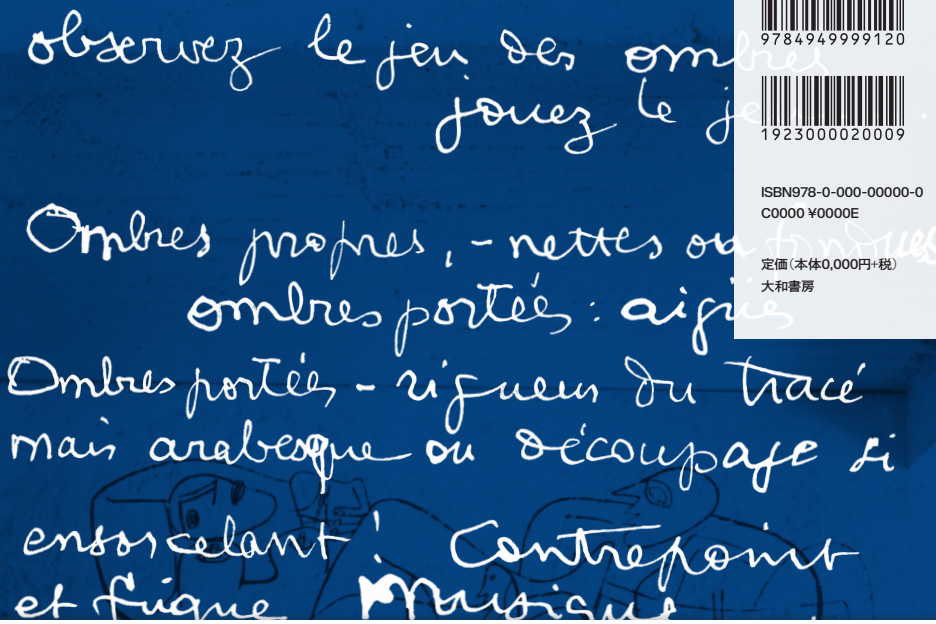 observez le jeu des ombres
jouez le je
Ombres propres, - nettes ou fondues
ombres portées : aigües
Ombres portées - rigueur du tracé
mais arabesque ou découpage si
ensorcelant ! Contrepoint
et fugue Musique
9784949999120
1923000020009
ISBN978-0-000-00000-0
C0000 ¥0000E
定価(本体0,000円+税)
大和書房